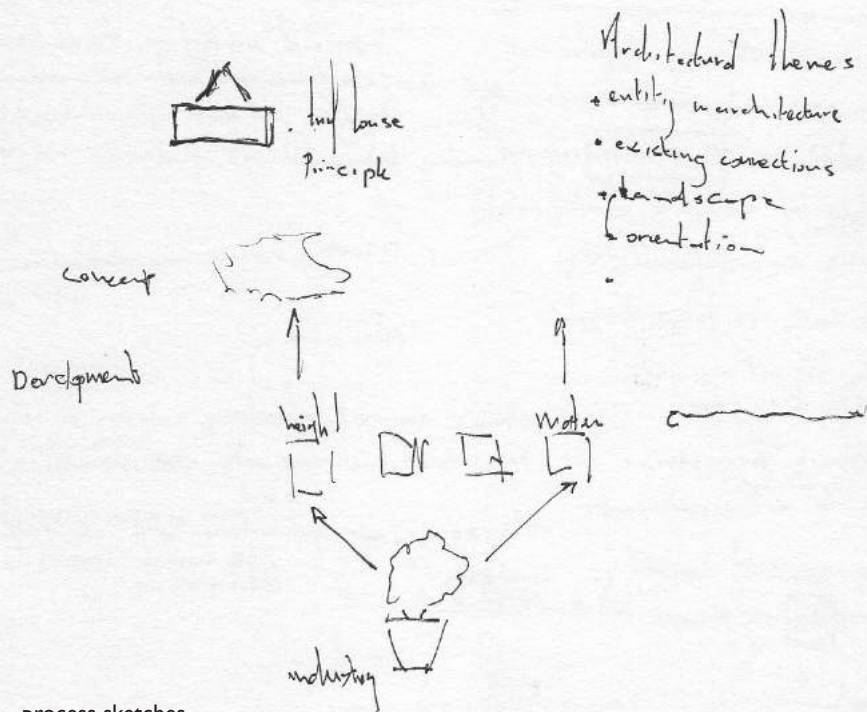 Architectural themes
• entity in architecture
• existing connections
• landscape
• orientation
•
• tiny house
Principle
Concept
Development
height
Water
industry
process sketches